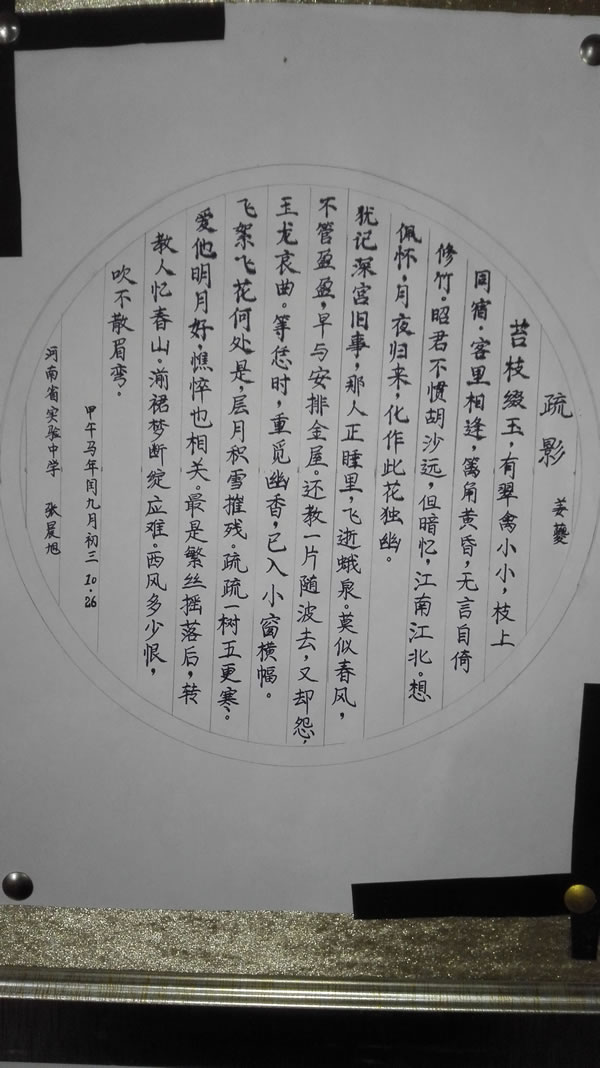 疏影
姜夔
苔枝缀玉，有翠禽小小，枝上
同宿。客里相逢，篱角黄昏，无言自倚
修竹。昭君不惯胡沙远，但暗忆，江南江北。想
佩怀，月夜归来，化作此花独幽。
犹记深宫旧事，那人正睡里，飞逝蛾泉。莫似春风，
不管盈盈，早与安排金屋。还教一片随波去，又却怨，
玉龙哀曲。等恁时，重觅幽香，已入小窗横幅。
飞絮飞花何处是，层月积雪摧残。疏疏一树五更寒。
爱他明月好，憔悴也相关。最是繁丝摇落后，转
教人忆春山。湔裙梦断绽应难。西风多少恨，
吹不散眉弯。
甲午马年闰九月初三 10.26
河南省实验中学 张晨旭